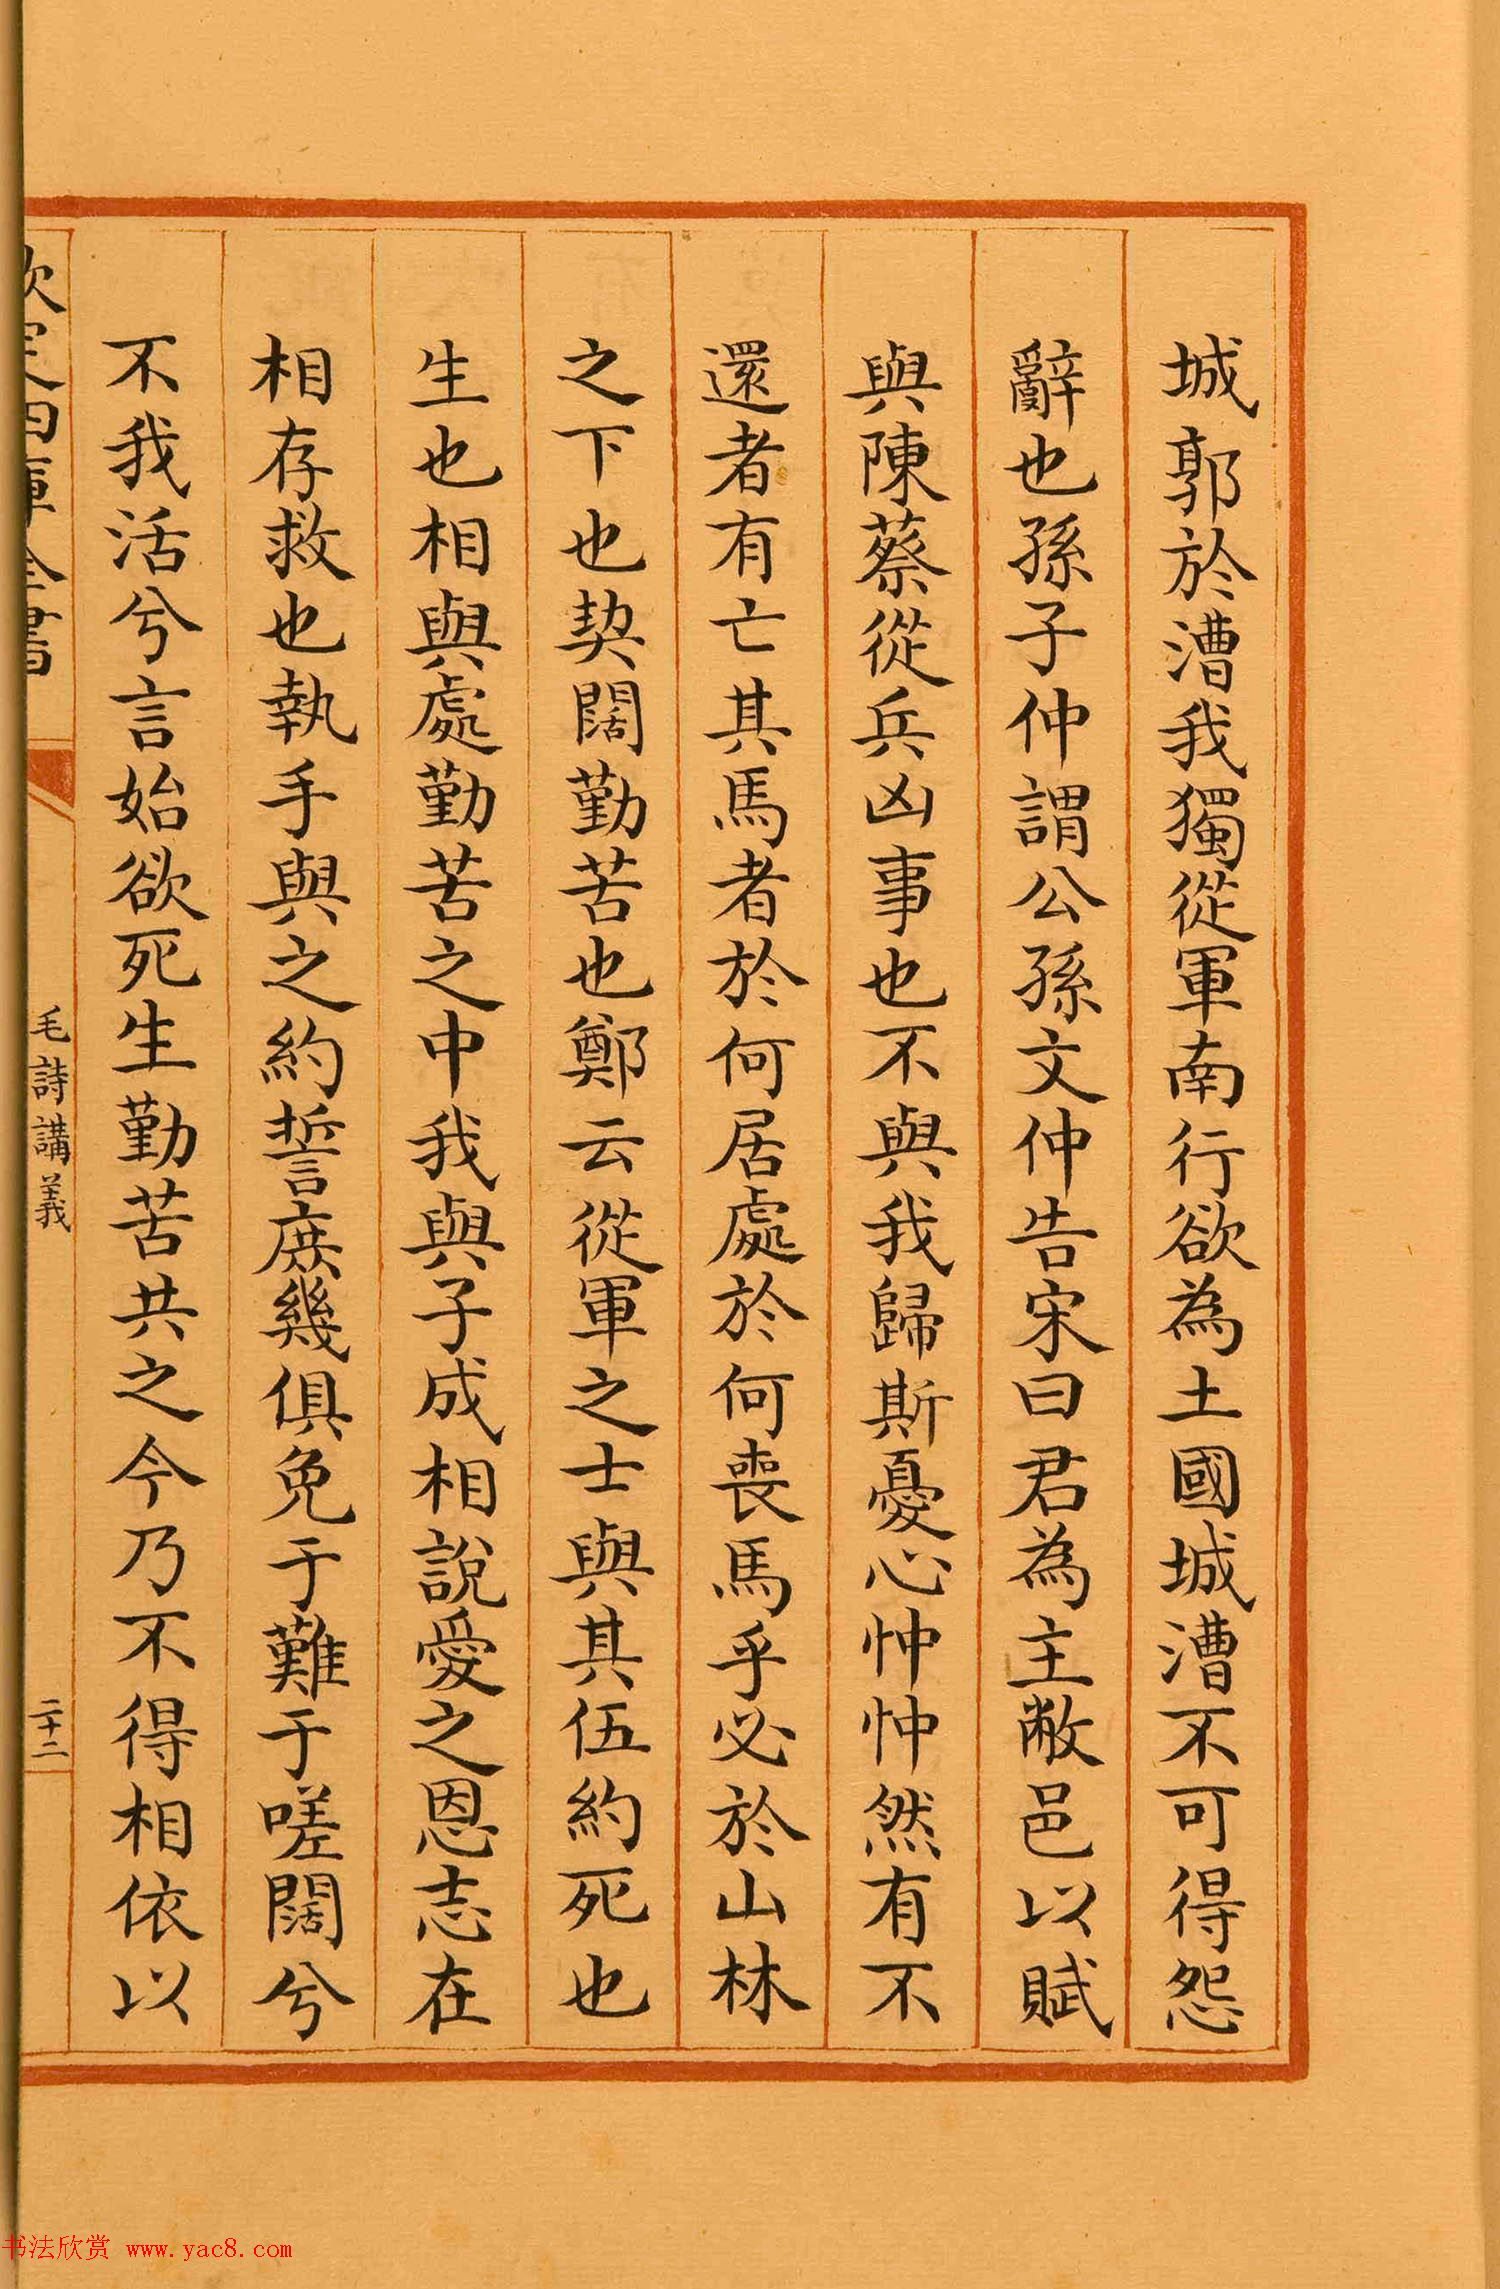 城郭於漕我獨從軍南行欲為土國城漕不可得怨
辭也孫子仲謂公孫文仲告宋曰君為主敝邑以賦
與陳蔡從兵凶事也不與我歸斯憂心忡忡然有不
還者有亡其馬者於何居處於何喪馬乎必於山林
之下也契闊勤苦也鄭云從軍之士與其伍約死也
生也相與處勤苦之中我與子成相說愛之恩志在
相存救也執手與之約誓庶幾俱免于難于嗟闊兮
不我活兮言始欲死生勤苦共之今乃不得相依以
欽定四庫全書
毛詩講義
二十二
书法欣赏 www.yac8.com